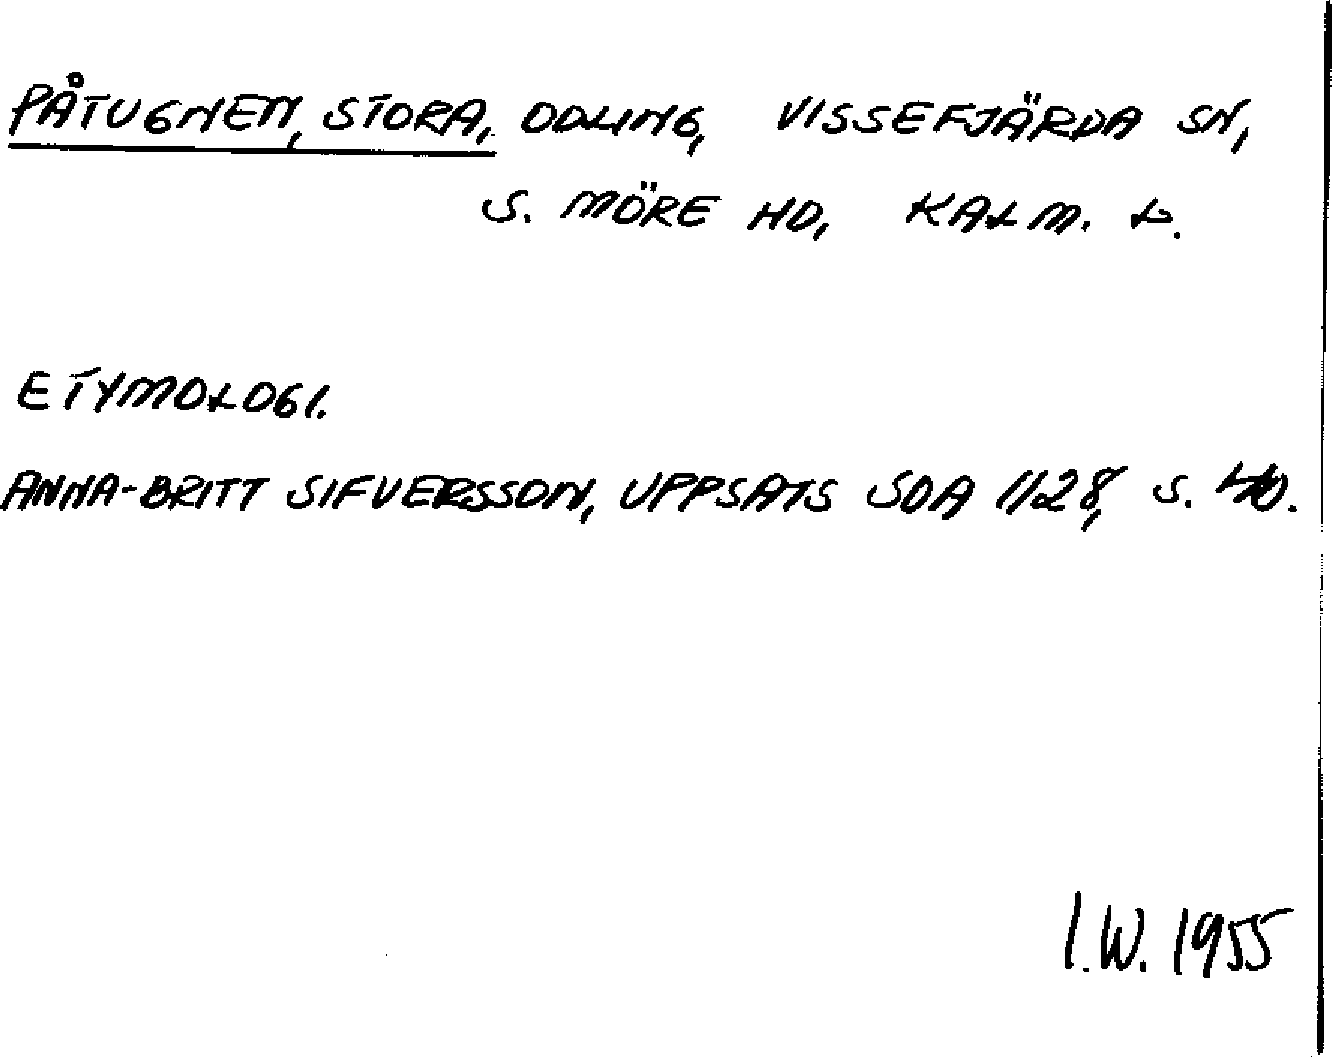 PÅTUGNEN, STORA, ODLING, VISSEFJÄRDA SN,
S. MÖRE HD, KALM. L.
ETYMOLOGI.
ANNA-BRITT SIFVERSSON, UPPSATS SOA 1128, S. 40.
I.W. 1955